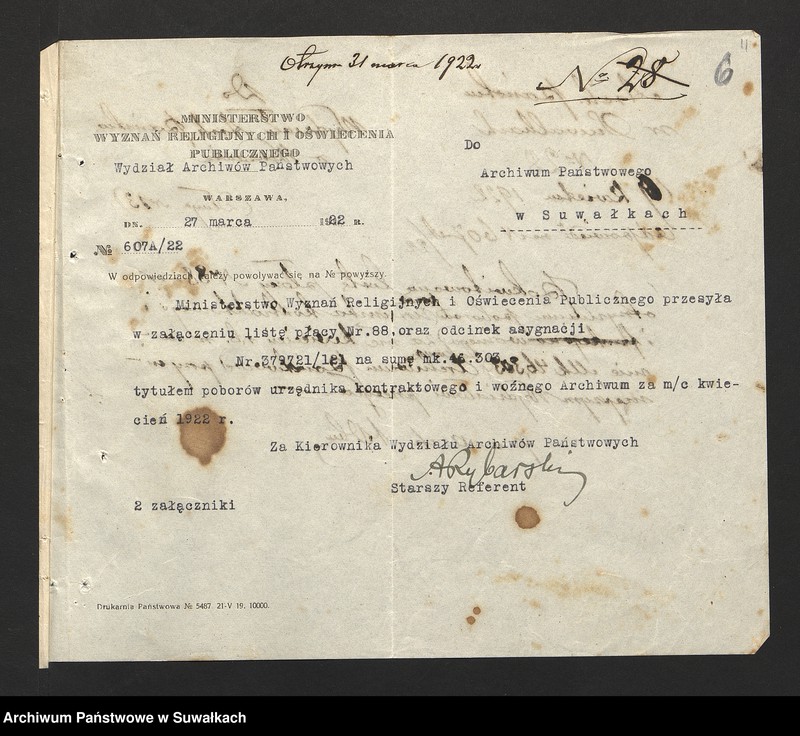 Otrzym 31 marca 1922r
No 28
6
MINISTERSTWO
WYZNAŃ RELIGIJNYCH I OŚWIECENIA
PUBLICZNEGO
Wydział Archiwów Państwowych
WARSZAWA,
DN. 27 marca 1922 R.
№ 607A/22
W odpowiedziach należy powoływać się na № powyższy.
Do
Archiwum Państwowego
w Suwałkach
Ministerstwo Wyznań Religijnych i Oświecenia Publicznego przesyła
w załączeniu listę płacy Nr.88 oraz odcinek asygnacji
Nr.379721/121 na sumę mk.46.303.-
tytułem poborów urzędnika kontraktowego i woźnego Archiwum za m/c kwie-
cień 1922 r.
Za Kierownika Wydziału Archiwów Państwowych
ARybarski
Starszy Referent
2 załączniki
Drukarnia Państwowa № 5487. 21-V 19. 10000.
Archiwum Państwowe w Suwałkach